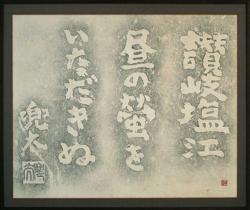 讃岐塩江
昼の螢を
いただきぬ
兜太